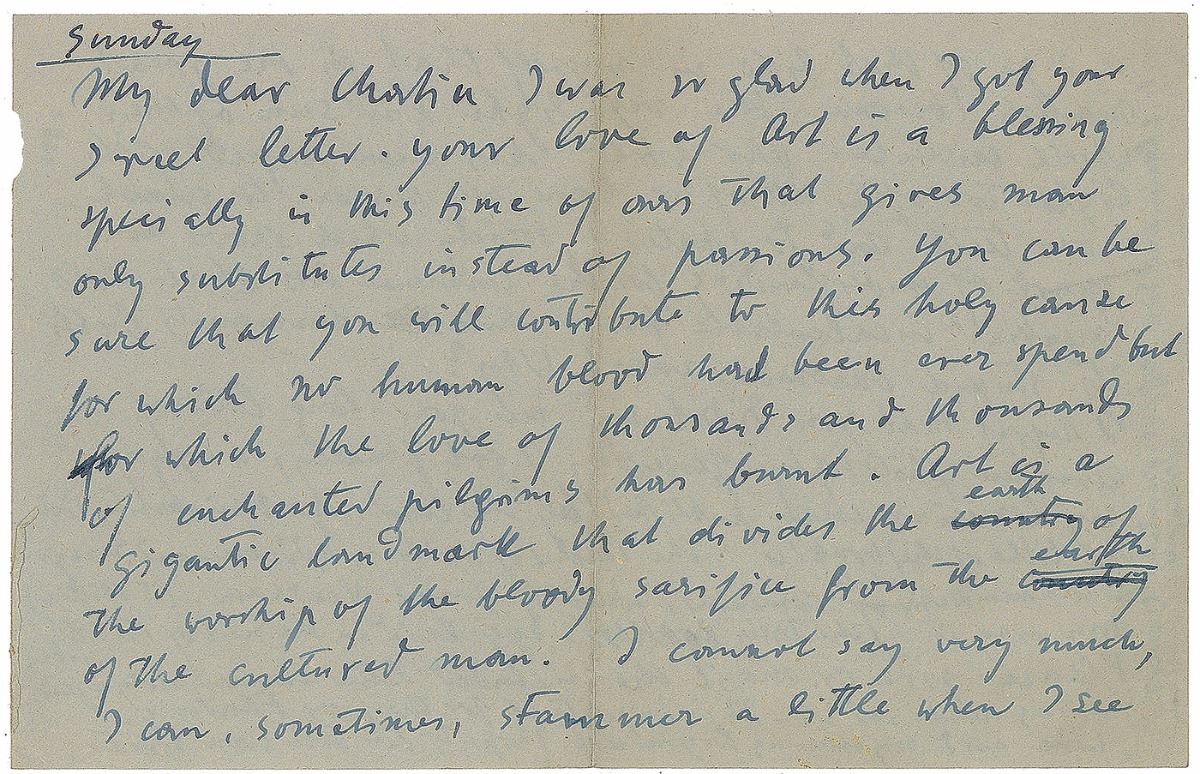 Sunday
My dear Chatin I was so glad when I got your
sweet letter. your love of Art is a blessing
specially in this time of ours that gives man
only substitutes instead of passions. You can be
sure that you will contribute to this holy cause
for which no human blood had been ever spend but
for which the love of thousands and thousands
of enchanted pilgrims has burnt. Art is a
gigantic landmark that divides the country earth of
the worship of the bloody sarifice from the country earth
of the cultured man. I cannot say very much,
I can, sometimes, stammer a little when I see